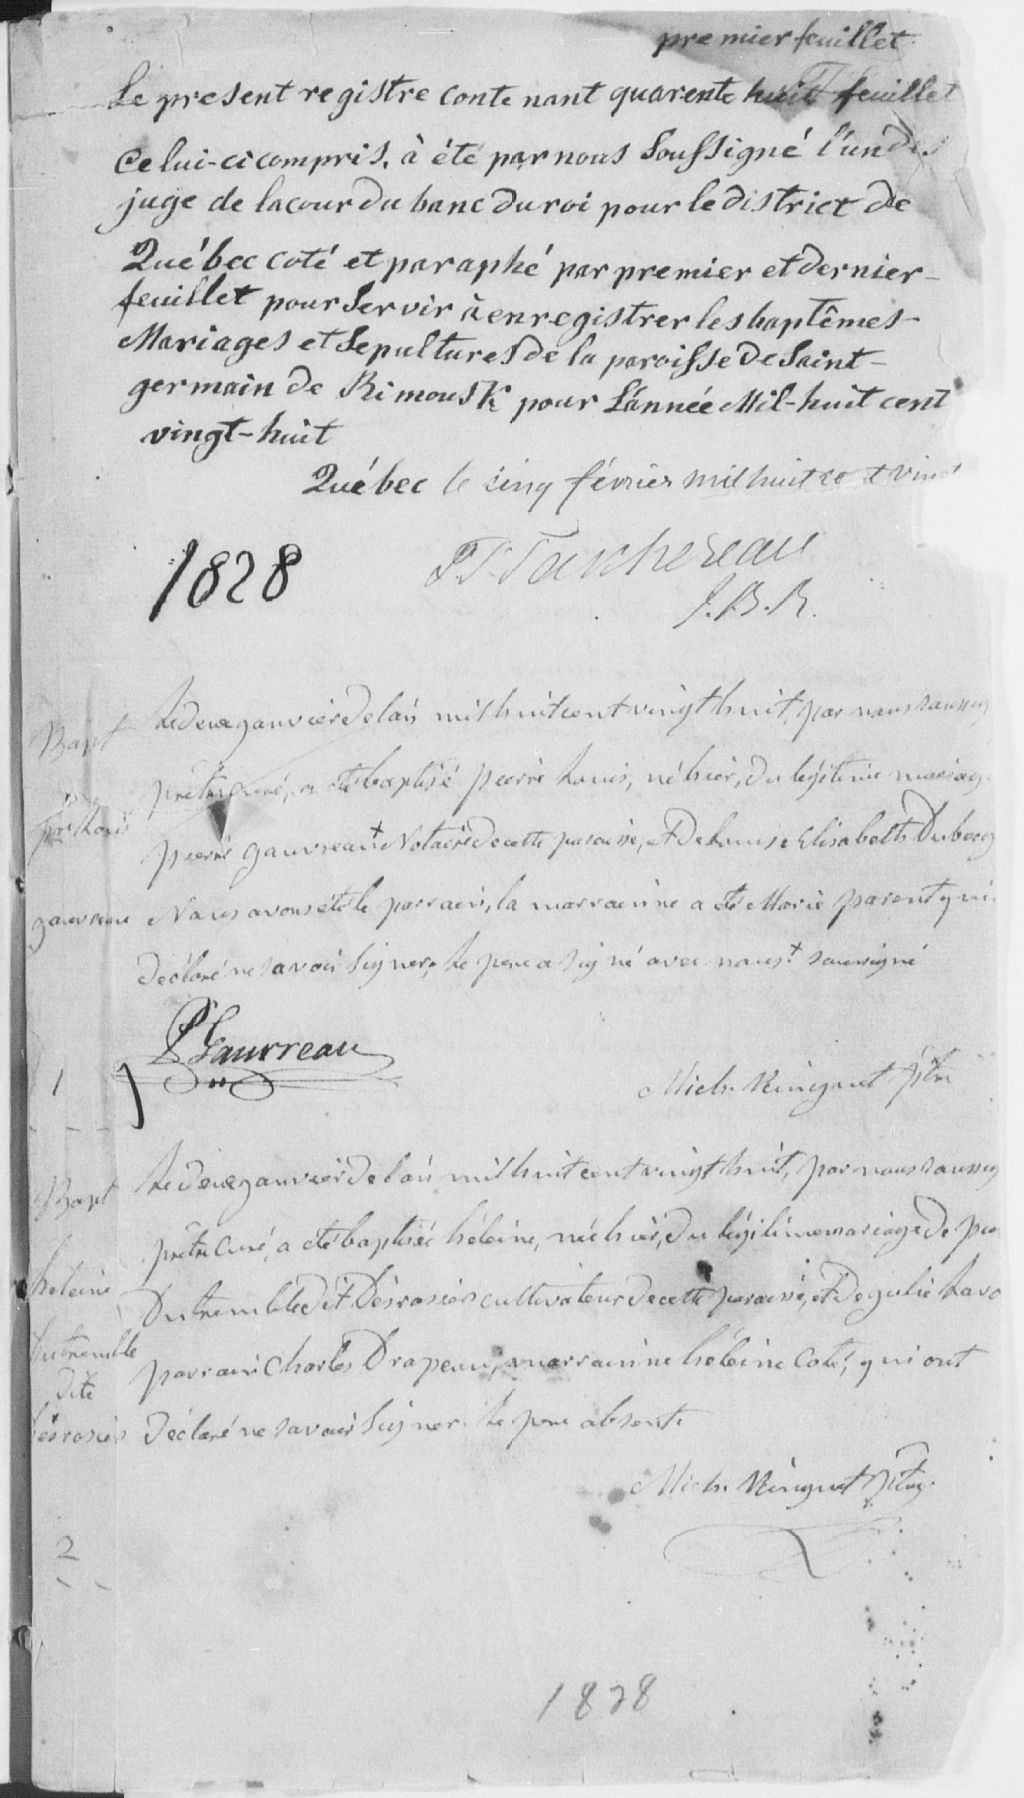 premier feuillet
Le present registre contenant quarente huit feuillet
Celui-ci compris, à été par nous Soussigné l'un des
juge de la cour du banc du roi pour le district de
Québec coté et paraphé par premier et dernier
feuillet pour Servir à enregistrer les baptêmes
Mariages et Sepultures de la paroisse de Saint-
germain de Rimousk pour L'année Mil-huit cent
vingt-huit
Québec le cinq février mil huit cent vingt
1828
Taschereau
J.B.R.
Bapt
Le deux janvier de l'an mil huit cent vingt huit, par nous soussig
prêtre curé, a été baptisé pierre Louis, né hier, du légitime mariag
pre Louis
pierre gauvreau + Notaire de cette paroisse, et De Louise Elisabeth Duberg
gauvreau
Nous avons été le parrain, la marrainne a été Marie parent qui
déclaré ne savoir signer, Le pere a signé avec nous + soussigné
P Gauvreau
1
Mich. Ringuet ptre
Bapt
Le deux janvier de l'an mil huit cent vingt huit, par nous soussig
prêtre curé, a été baptisée héleine, née hier, du légitime mariage de
heleine
Dutremble dit Desrosiers cultivateur de cette paroisse, et De julie Lavo
Dutremble
dite
parrain Charles Drapeau, marrainne héleine Coté, qui ont
Desrosiers
déclaré ne savoir signer. Le pere absent.
Mich. Ringuet ptre
2
1828